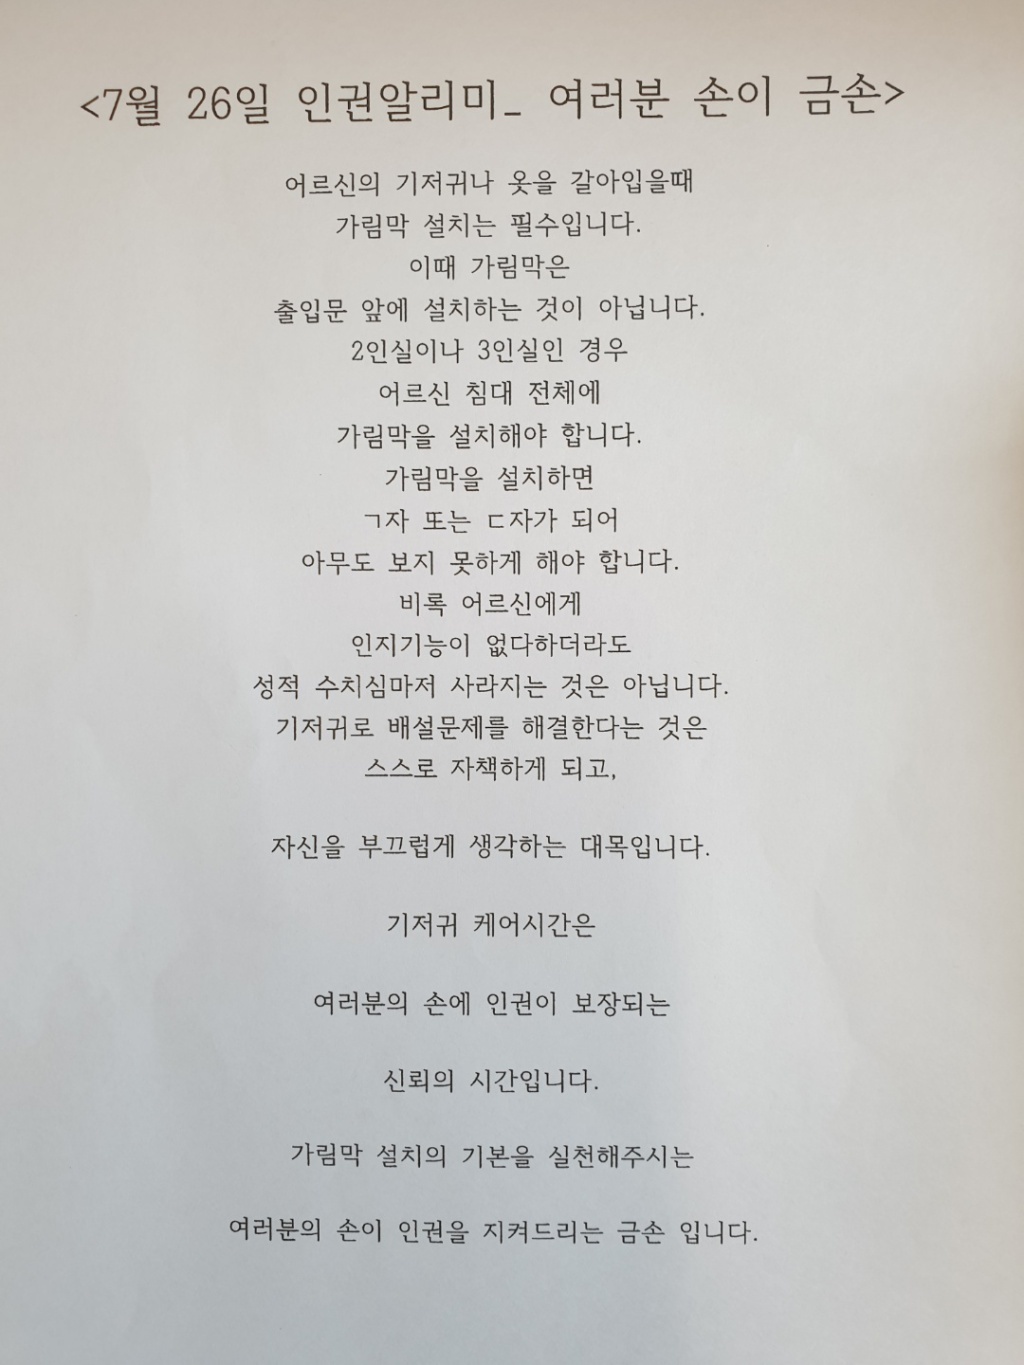 <7월 26일 인권알리미_ 여러분 손이 금손>
어르신의 기저귀나 옷을 갈아입을때
가림막 설치는 필수입니다.
이때 가림막은
출입문 앞에 설치하는 것이 아닙니다.
2인실이나 3인실인 경우
어르신 침대 전체에
가림막을 설치해야 합니다.
가림막을 설치하면
ㄱ자 또는 ㄷ자가 되어
아무도 보지 못하게 해야 합니다.
비록 어르신에게
인지기능이 없다하더라도
성적 수치심마저 사라지는 것은 아닙니다.
기저귀로 배설문제를 해결한다는 것은
스스로 자책하게 되고,
자신을 부끄럽게 생각하는 대목입니다.
기저귀 케어시간은
여러분의 손에 인권이 보장되는
신뢰의 시간입니다.
가림막 설치의 기본을 실천해주시는
여러분의 손이 인권을 지켜드리는 금손 입니다.